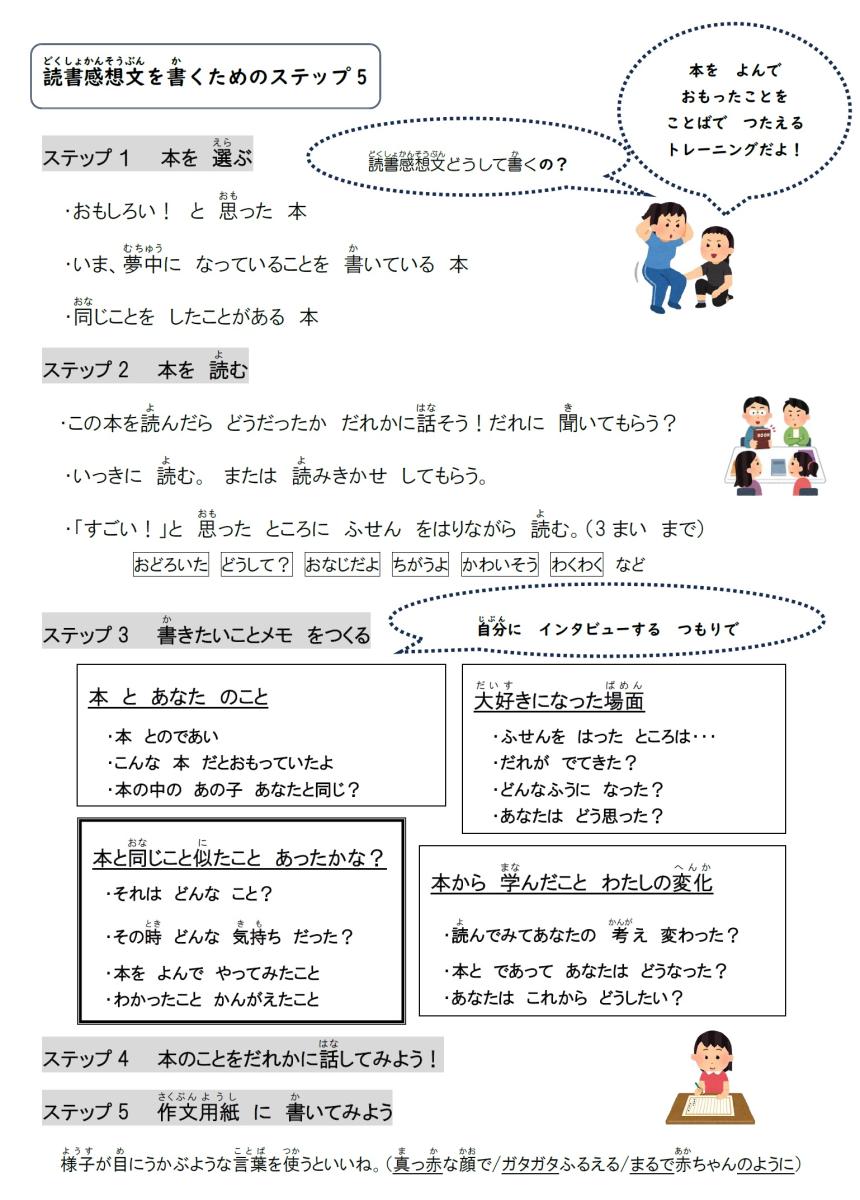 読書感想文を書くためのステップ5
本を　よんで
おもったことを
ことばで　つたえる
トレーニングだよ！
読書感想文どうして書くの？
ステップ1　本を　選ぶ
・おもしろい！　と　思った　本
・いま、夢中に　なっていることを　書いている　本
・同じことを　したことがある　本
ステップ2　本を　読む
・この本を読んだら　どうだったか　だれかに話そう！だれに　聞いてもらう？
・いっきに　読む。　または　読みきかせ　してもらう。
・「すごい！」と　思った　ところに　ふせん　をはりながら　読む。（3まい　まで）
おどろいた　どうして？　おなじだよ　ちがうよ　かわいそう　わくわく　など
BOOK
ステップ3　書きたいことメモ　をつくる
自分に　インタビューする　つもりで
本　と　あなた　のこと
・本　とのであい
・こんな　本　だとおもっていたよ
・本の中の　あの子　あなたと同じ？
大好きになった場面
・ふせんを　はった　ところは・・・
・だれが　でてきた？
・どんなふうに　なった？
・あなたは　どう思った？
本と同じこと似たこと　あったかな？
・それは　どんな　こと？
・その時　どんな　気持ち　だった？
・本を　よんで　やってみたこと
・わかったこと　かんがえたこと
本から　学んだこと　わたしの変化
・読んでみてあなたの　考え　変わった？
・本と　であって　あなたは　どうなった？
・あなたは　これから　どうしたい？
ステップ4　本のことをだれかに話してみよう！
ステップ5　作文用紙　に　書いてみよう
様子が目にうかぶような言葉を使うといいね。（真っ赤な顔で/ガタガタふるえる/まるで赤ちゃんのように）